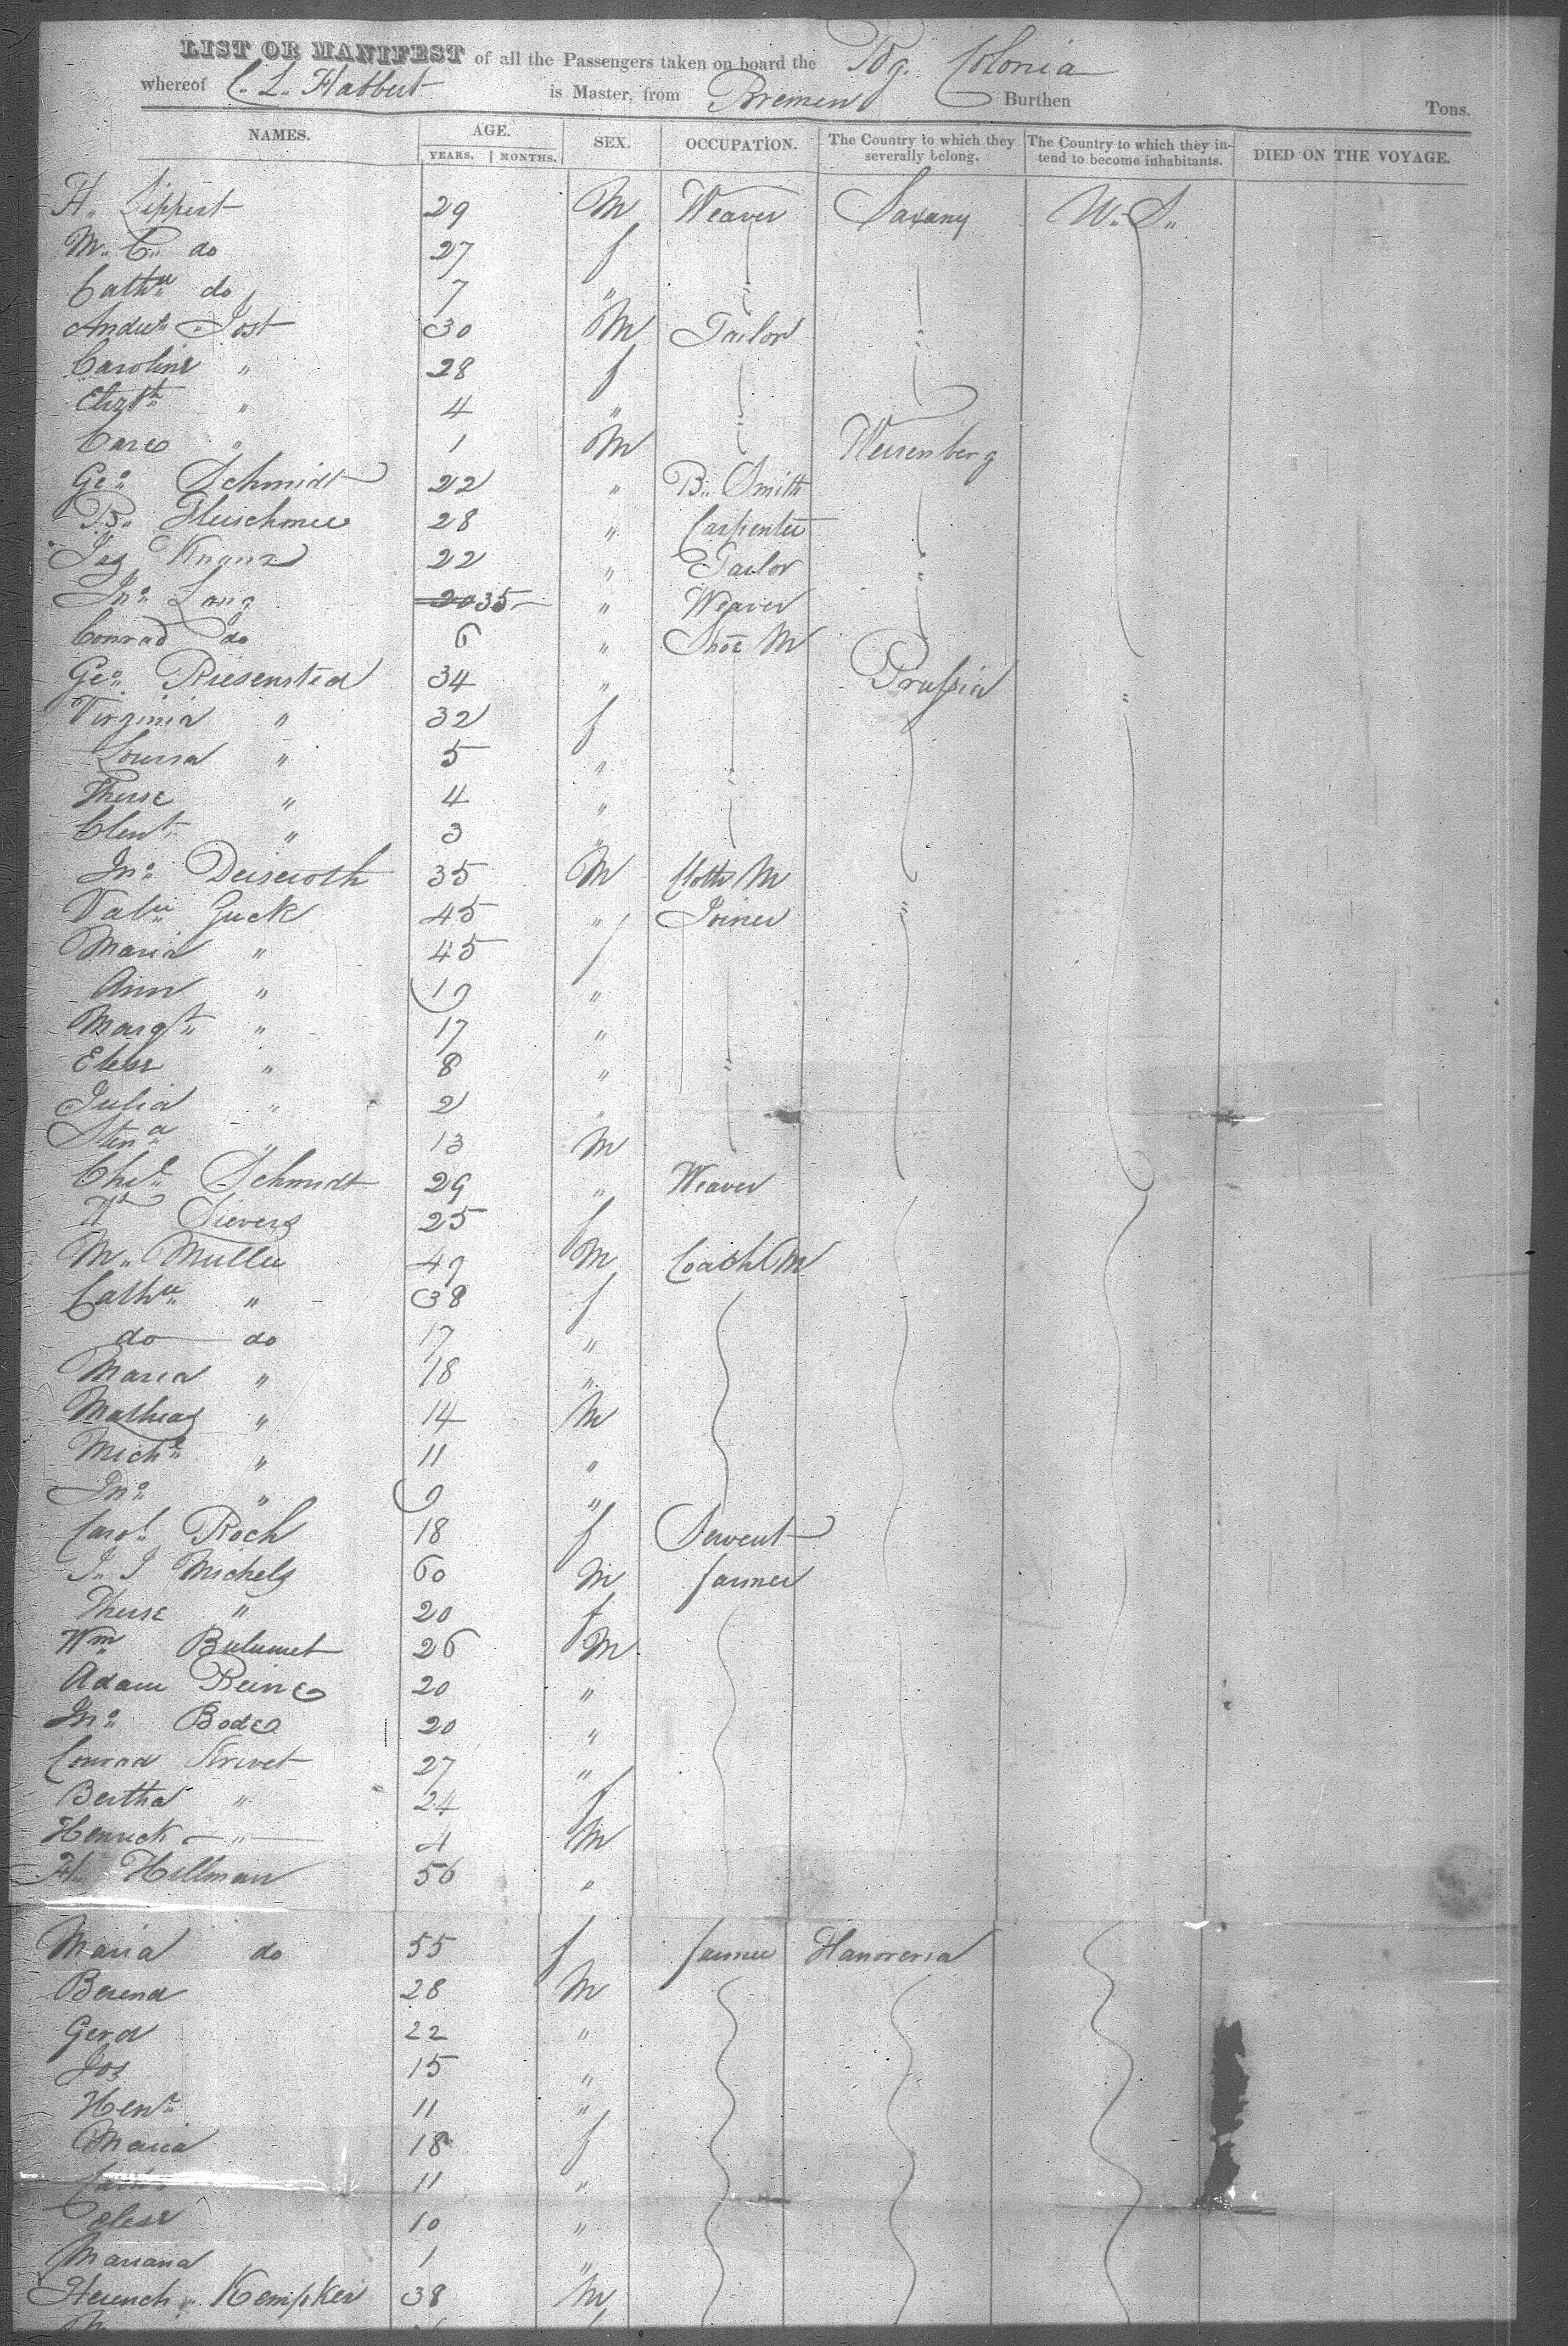 LIST OR MANIFEST of all the Passengers taken on board the Bg. Colonia
whereof C. L. Habbert is Master, from Bremen Burthen Tons.
NAMES. AGE. SEX. OCCUPATION. The Country to which they severally belong. The Country to which they intend to become inhabitants. DIED ON THE VOYAGE.
YEARS. MONTHS.
H. Lippert 29 M Weaver Saxany U.S.
M. C. do 27 f
Cathe do 7 "
Andw Jost 30 M Tailor
Caroline " 28 f
Elizth " 4 "
Care " 1 M
Geo Schmidt 22 " B. Smith
B. 28 " Carpenter
Jas 22 " Tailor
Jno Long 20 35 " Weaver
Conrad do 6 " Shoe M
Geo Riesensted 34 " Prussia "
Virginia " 32 f
Louisa " 5 "
Therse " 4 "
Clent " 3 "
Jno Deiseroth 35 M Cloth M
Vale Guck 45 " Joiner "
Maria " 45 f
Ann " 19 "
Margt " 17 "
Elese " 8 "
Julia " 2 "
" 13 M
Chr Schmidt 29 " Weaver
Sievers 25 f
M. Muller 49 M Coach M
Cathe " 38 f
do do 17 "
Maria " 18 "
Mathias " 14 M
Michl " 11 "
Jno " 9 "
Carol Roch 18 f Servent
J. J Michels 60 M farmer
Therse " 20 f
Wm 26 M
Adam Reine 20 "
Jno Bode 20 "
Conrad Krivet 27 "
Bertha " 24 f
Henrick " 4 M
H. Hillman 56 "
Maria do 55 f farmer Hanoveria
Berend 28 M
Gerd 22 "
Jos 15 "
Henr 11 "
Maria 18 f
11 "
Elese 10 "
Mariana 1 "
Heinrich Kempker 38 M